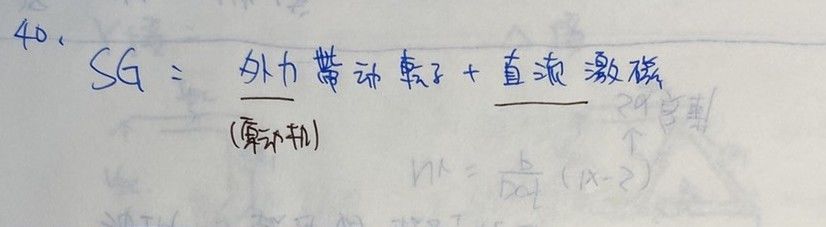 40.
SG = 外力帶动転子 + 直流激磁
(原动机)